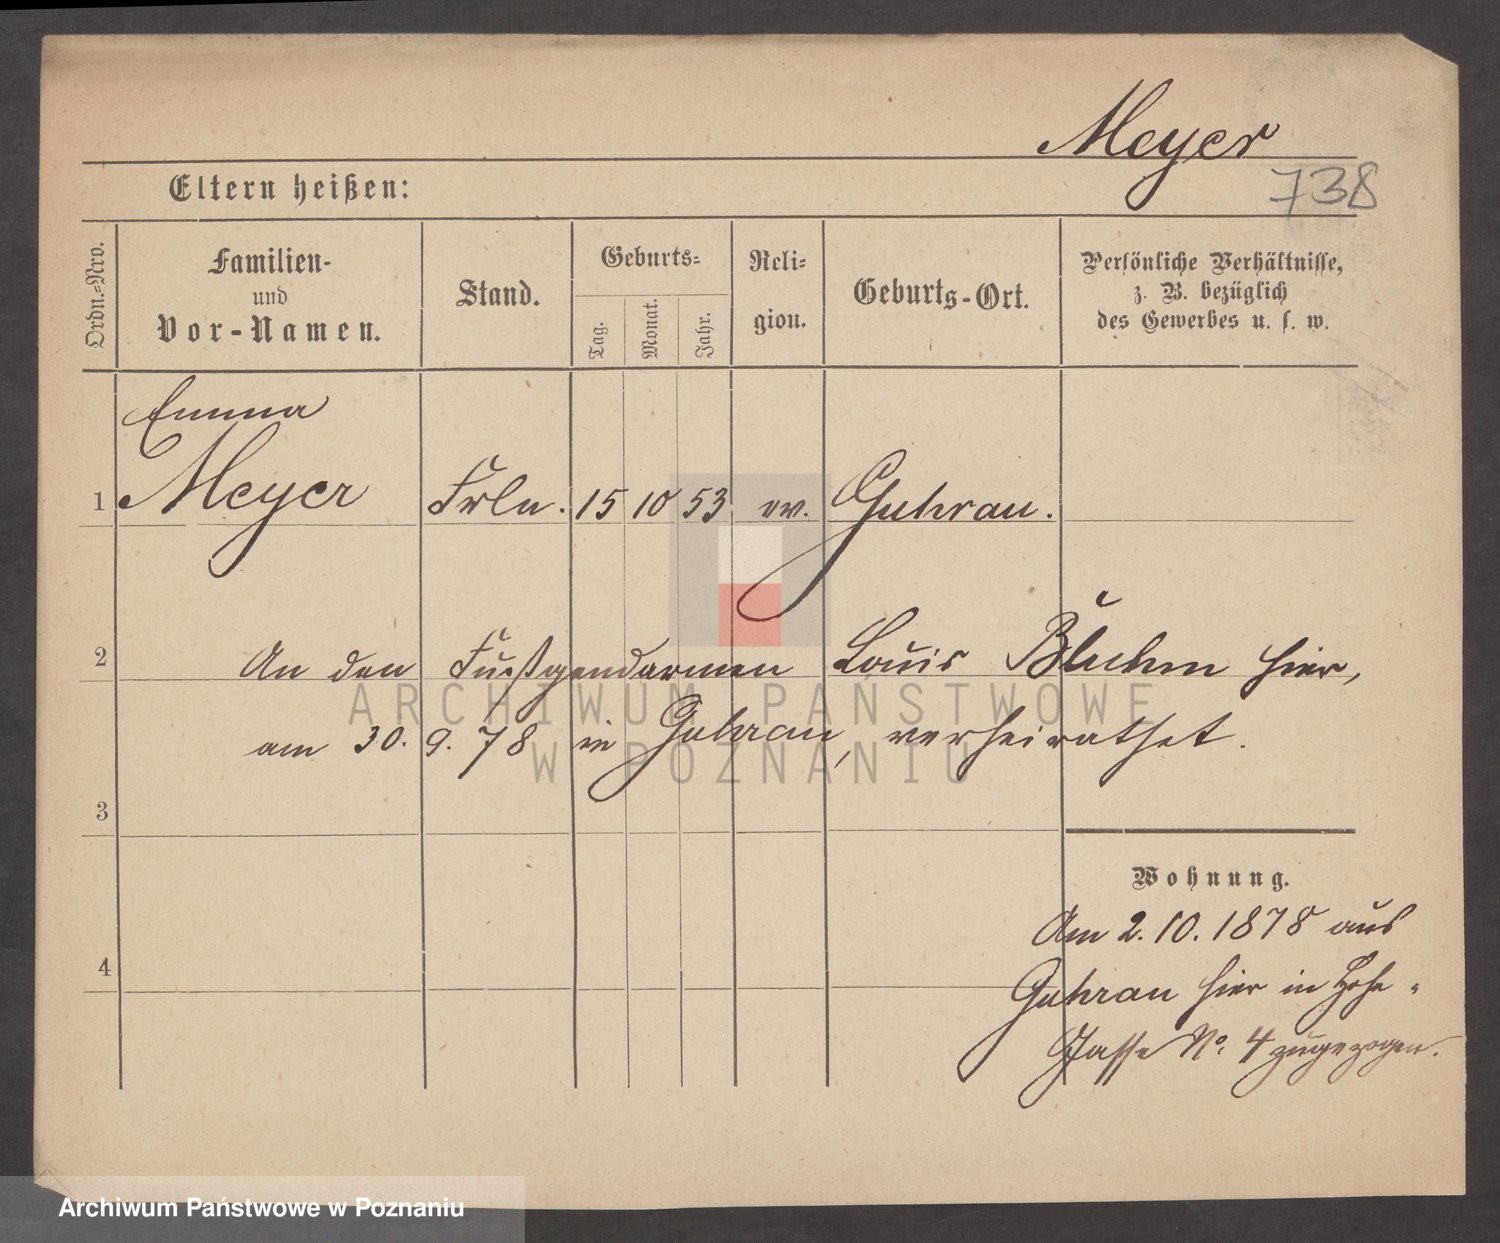 Meyer
738
Eltern heißen:
Ordn.-Nro.
Familien-
und
Vor-Namen.
Stand.
Geburts-
Tag.
Monat.
Jahr.
Reli-
gion.
Geburts-Ort.
Persönliche Verhältnisse,
z. B. bezüglich
des Gewerbes u. s. w.
Emma
1 Meyer Frln. 15 10 53 ev. Guhrau.
2 An den Fußgendarmen Louis Bluhm hier,
am 30. 9. 78 in Guhrau, verheirathet.
3
Wohnung.
Am 2. 10. 1878 aus
4 Guhrau hier in Hohe-
Gasse No. 4 zugezogen.
ARCHIWUM PAŃSTWOWE
W POZNANIU
Archiwum Państwowe w Poznaniu